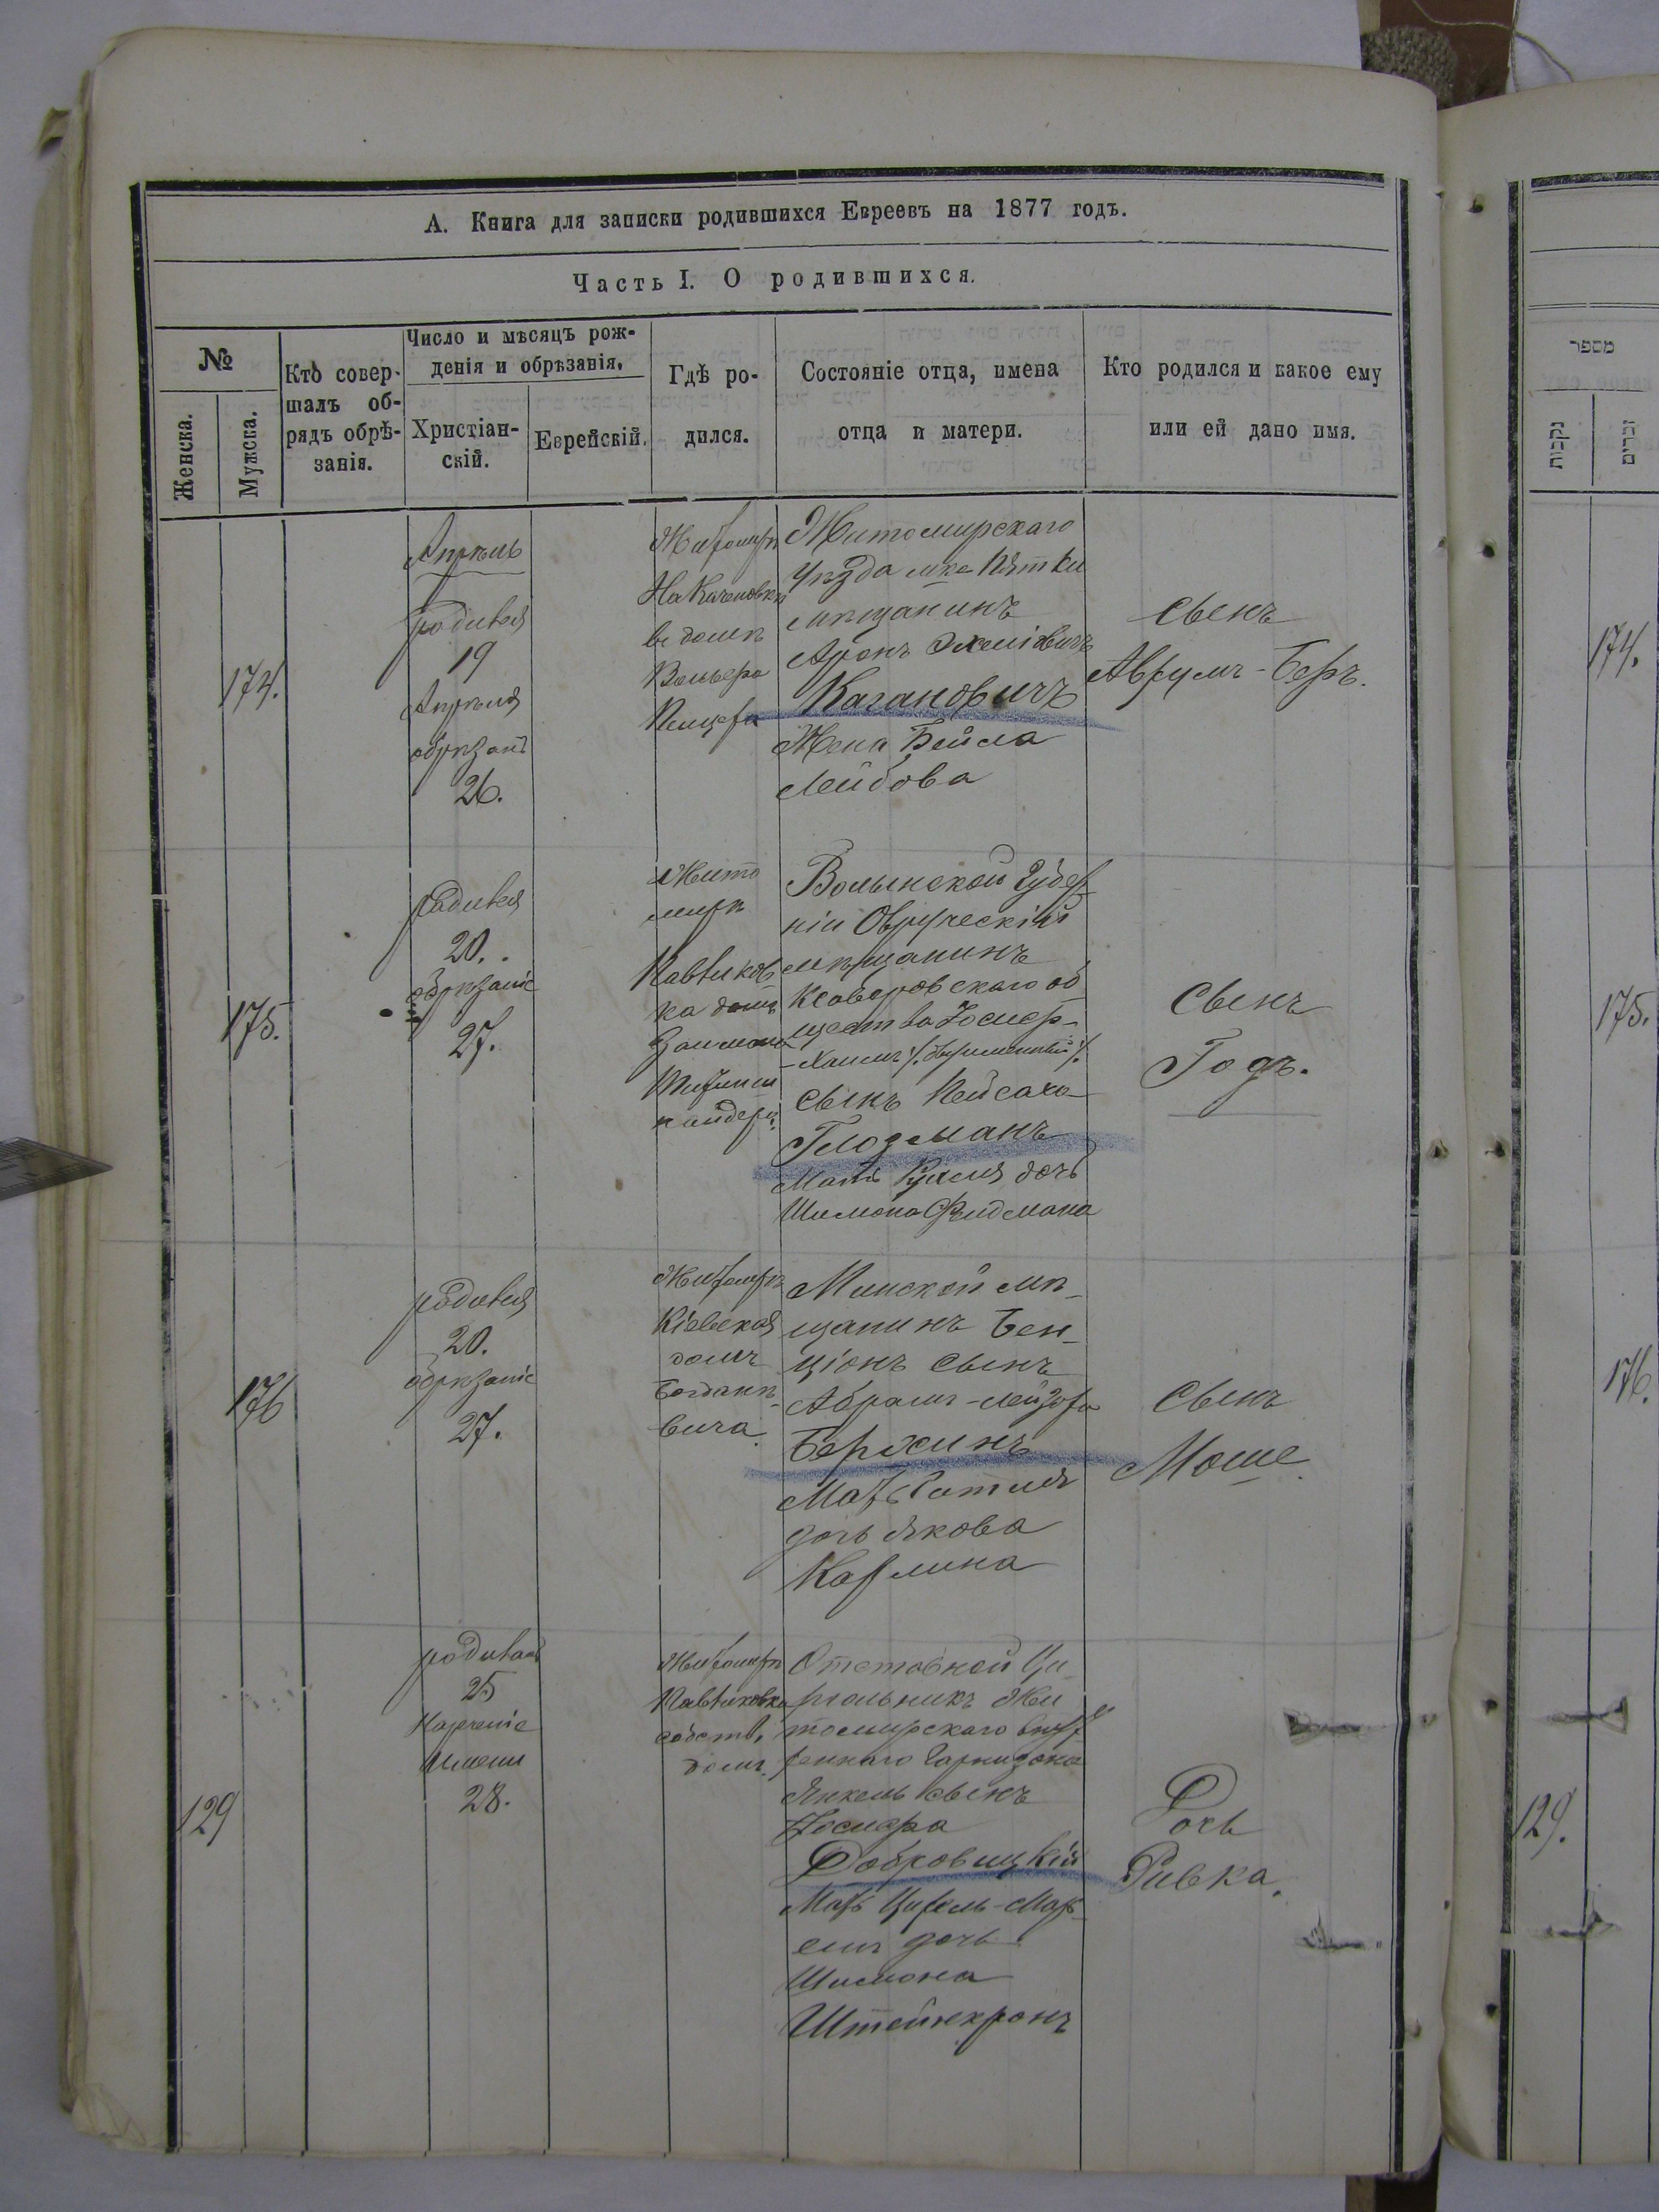 А. Книга для записки родившихся Евреевъ на 1877 годъ.
Часть I. О родившихся.
№
Женска.
Мужска.
Кто совер-
шалъ об-
рядъ обрѣ-
занія.
Число и мѣсяцъ рож-
денія и обрѣзанія.
Христіан-
скій.
Еврейскій.
Гдѣ ро-
дился.
Состояніе отца, имена
отца и матери.
Кто родился и какое ему
или ей дано имя.
174.
Апрѣль
родился
19
Апрѣля
обрѣзанъ
26.
Житомирѣ
въ домѣ
Житомирскаго
Уѣзда мка Пятки
мѣщанинъ
Аронъ
Кагановичъ
Жена Бейла
Лейбова
сынъ
Аврумъ-Беръ.
175.
родился
20.
обрѣзаніе
27.
Жито
мирѣ
Павликов
ка домъ
Волынской Губер-
ніи Овручскій
мѣщанинъ
Ксаверовскаго об
щества Іосиф-
Хаимъ
сынъ Пейсаха
Глозманъ
Мать Рухля дочь
Шимона Фридмана
Сынъ
Годъ.
176
родился
20.
обрѣзаніе
27.
Житомирѣ
Кіевская
домъ
Богданѣ-
вича.
Минской мѣ-
щанинъ Бен-
ціонъ сынъ
Абрамъ-Лейзора
Берхинъ
Мать
дочь Якова
Карлина
Сынъ
Моше.
129
родилась
25
Нареченіе
имени
28.
Житомирѣ
Павликовка
собств.
домъ.
Отставной Ци-
рюльникъ Жи
томирскаго внут
реннаго Гарнизона
Янкель сынъ
Іосифа
Добровицкій
Мать
дочь
Шимона
Штейнкронъ
Дочь
Ривка.
מספר
נקבות
זכרים
174.
175.
176.
129.